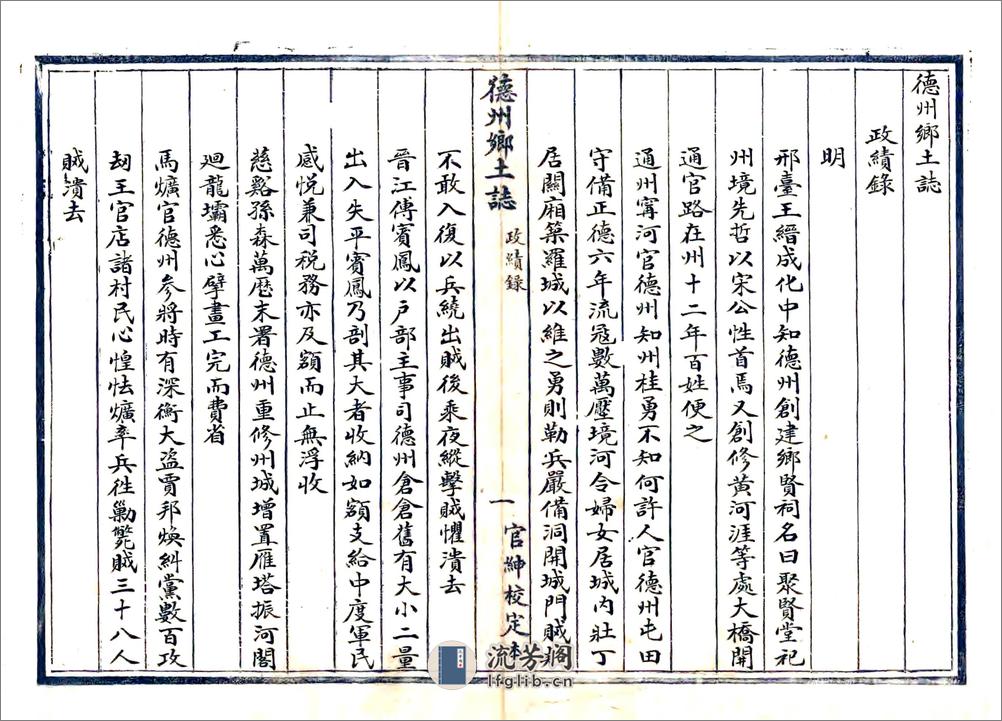 德州鄉土誌
政績錄
明
邢臺王縉成化中知德州創建鄉賢祠名曰聚賢堂祀
州境先哲以宋公性首焉又創修黃河涯等處大橋開
通官路在州十二年百姓便之
通州甯河官德州知州桂勇不知何許人官德州屯田
守備正德六年流寇數萬壓境河令婦女居城內壯丁
居關廂築羅城以維之勇則勒兵嚴備洞開城門賊
德州鄉土誌
政績錄
一
官紳校定本
不敢入復以兵繞出賊後乘夜縱擊賊懼潰去
晉江傅賓鳳以戶部主事司德州倉倉舊有大小二量
出入失平賓鳳乃剖其大者收納如額支給中度軍民
感悅兼司稅務亦及額而止無浮收
慈谿孫森萬曆末署德州重修州城增置雁塔振河閣
迴龍壩悉心擘畫工完而費省
馬爌官德州參將時有深衡大盜賈邦煥糾黨數百攻
劫王官店諸村民心惶怯爌率兵往勦斃賊三十八人
賊潰去
流芳閣
lfglib.cn